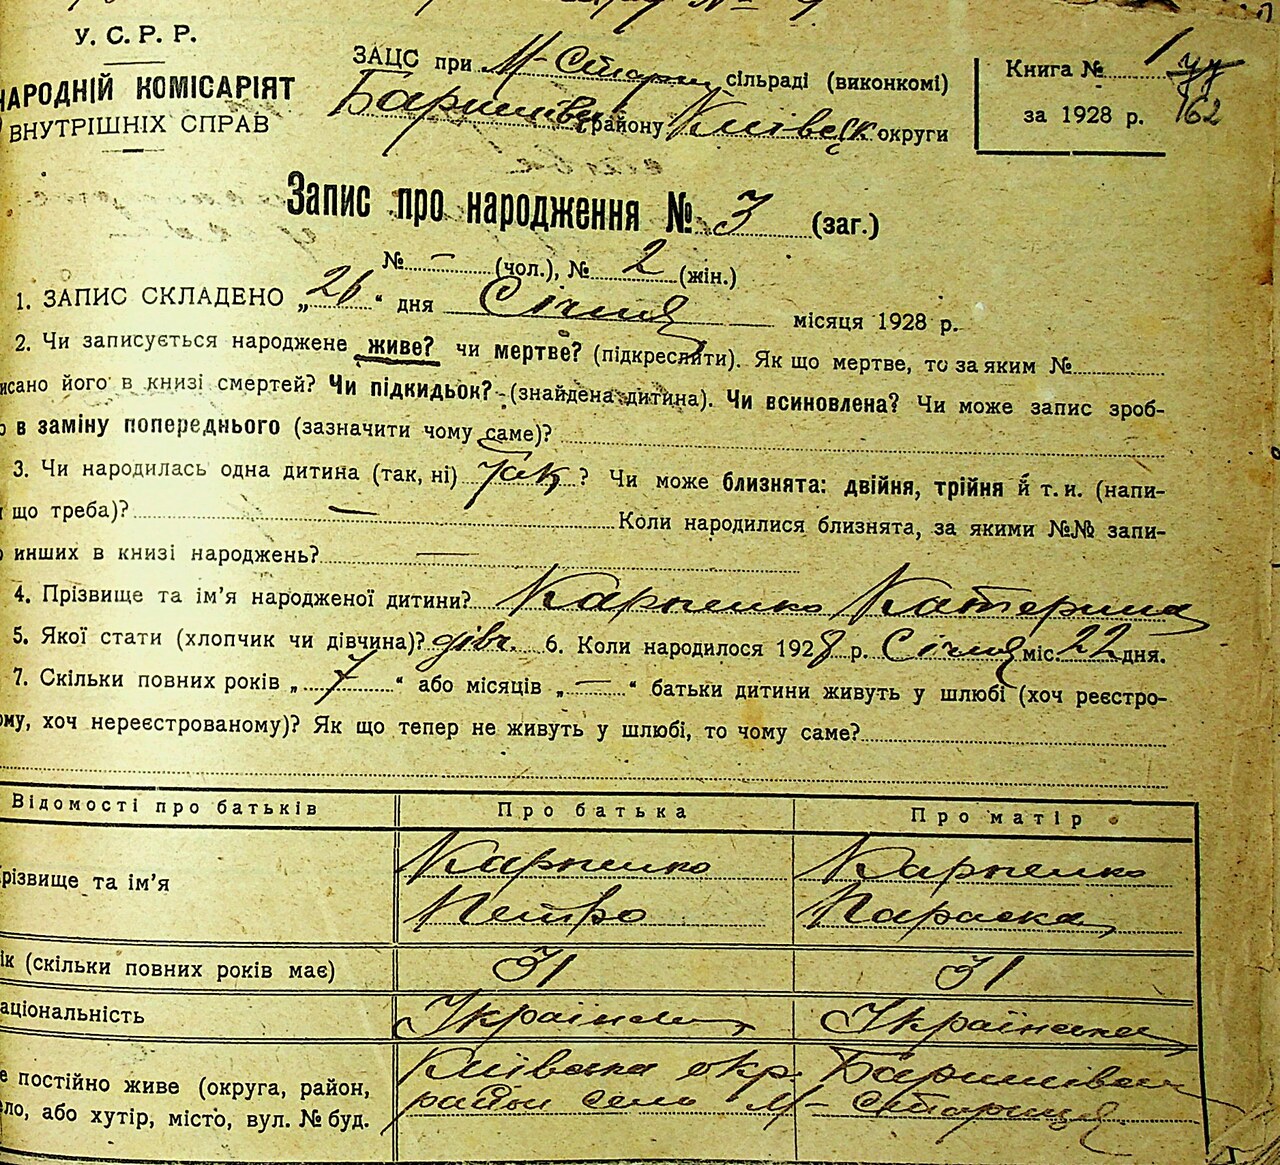 У. С. Р. Р.
НАРОДНІЙ КОМІСАРІЯТ
ВНУТРІШНІХ СПРАВ
ЗАЦС при М-Стариц сільраді (виконкомі)
Баришівськ району Київськ округи
Книга № 1
за 1928 р. 162
Запис про народження № 3 (заг.)
№ - (чол.), № 2 (жін.)
1. ЗАПИС СКЛАДЕНО „26“ дня Січня місяця 1928 р.
2. Чи записується народжене живе? чи мертве? (підкреслити). Як що мертве, то за яким №
исано його в книзі смертей? Чи підкидьок? (знайдена дитина). Чи всиновлена? Чи може запис зроб-
о в заміну попереднього (зазначити чому саме)?
3. Чи народилась одна дитина (так, ні) Так ? Чи може близнята: двійня, трійня й т. и. (напи-
що треба)? — Коли народилися близнята, за якими №№ запи-
о инших в книзі народжень? —
4. Прізвище та ім’я народженої дитини? Карпенко Катерина
5. Якої стати (хлопчик чи дівчина)? дівч. 6. Коли народилося 1928 р. Січня міс. 22 дня.
7. Скільки повних років „7“ або місяців „—“ батьки дитини живуть у шлюбі (хоч реєстро-
ому, хоч нереєстрованому)? Як що тепер не живуть у шлюбі, то чому саме?
Відомості про батьків Про батька Про матір
різвище та ім’я Карпенко Карпенко
Петро Параска
ік (скільки повних років має) 31 31
аціональність Українець Українка
е постійно живе (округа, район, Київська окр. Баришівськ
ло, або хутір, місто, вул. № буд. район село М-Стариця